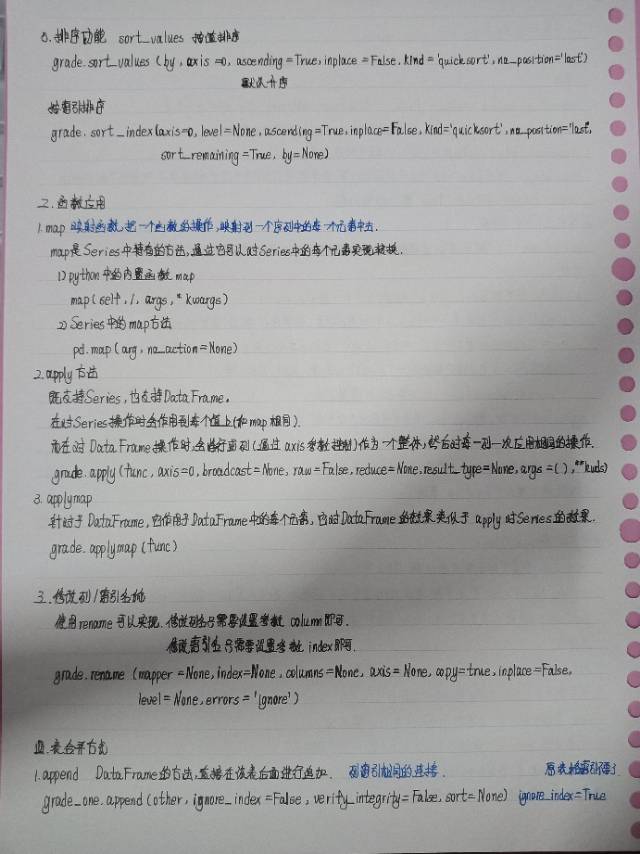 8. 排序功能 sort_values 按值排序
grade.sort_values (by, axis =0, ascending=True, inplace=False, kind='quicksort', na_position='last')
默认升序
按索引排序
grade. sort_index(axis=0, level=None, ascending=True, inplace=False, kind='quicksort', na_position='last',
sort_remaining=True, by=None)
2. 函数应用
1. map 映射函数, 把一个函数的操作, 映射到一个序列中的每一个元素中去.
map是Series中特有的方法, 通过它可以对Series中的每个元素实现转换.
1) python中的内置函数 map
map(self, /, args, * kwargs)
2) Series中的map方法
pd.map(arg, na_action=None)
2. apply 方法
既支持Series, 也支持DataFrame.
在对Series操作时会作用到每个值上(和map相同).
而在对 DataFrame操作时, 会将行或列(通过 axis参数控制)作为一个整体, 然后对每一列一次应用相同的操作.
grade.apply(func, axis=0, broadcast=None, raw=False, reduce=None, result_type=None, args=(), **kwds)
3. applymap
针对于DataFrame, 它作用于DataFrame中的每个元素, 它对DataFrame的效果类似于 apply 对Series的效果.
grade.applymap (func)
3. 修改列/索引名称
使用rename可以实现. 修改列名只需要设置参数 column即可.
修改索引名只需要设置参数 index即可.
grade.rename (mapper=None, index=None, columns=None, axis=None, copy=true, inplace=False,
level=None, errors='ignore')
四. 表合并方式
1. append DataFrame的方法, 直接在该表后面进行追加. 列索引相同的连接. 原表格索引
grade_one.append(other, ignore_index=False, verify_integrity=False, sort=None) ignore_index=True